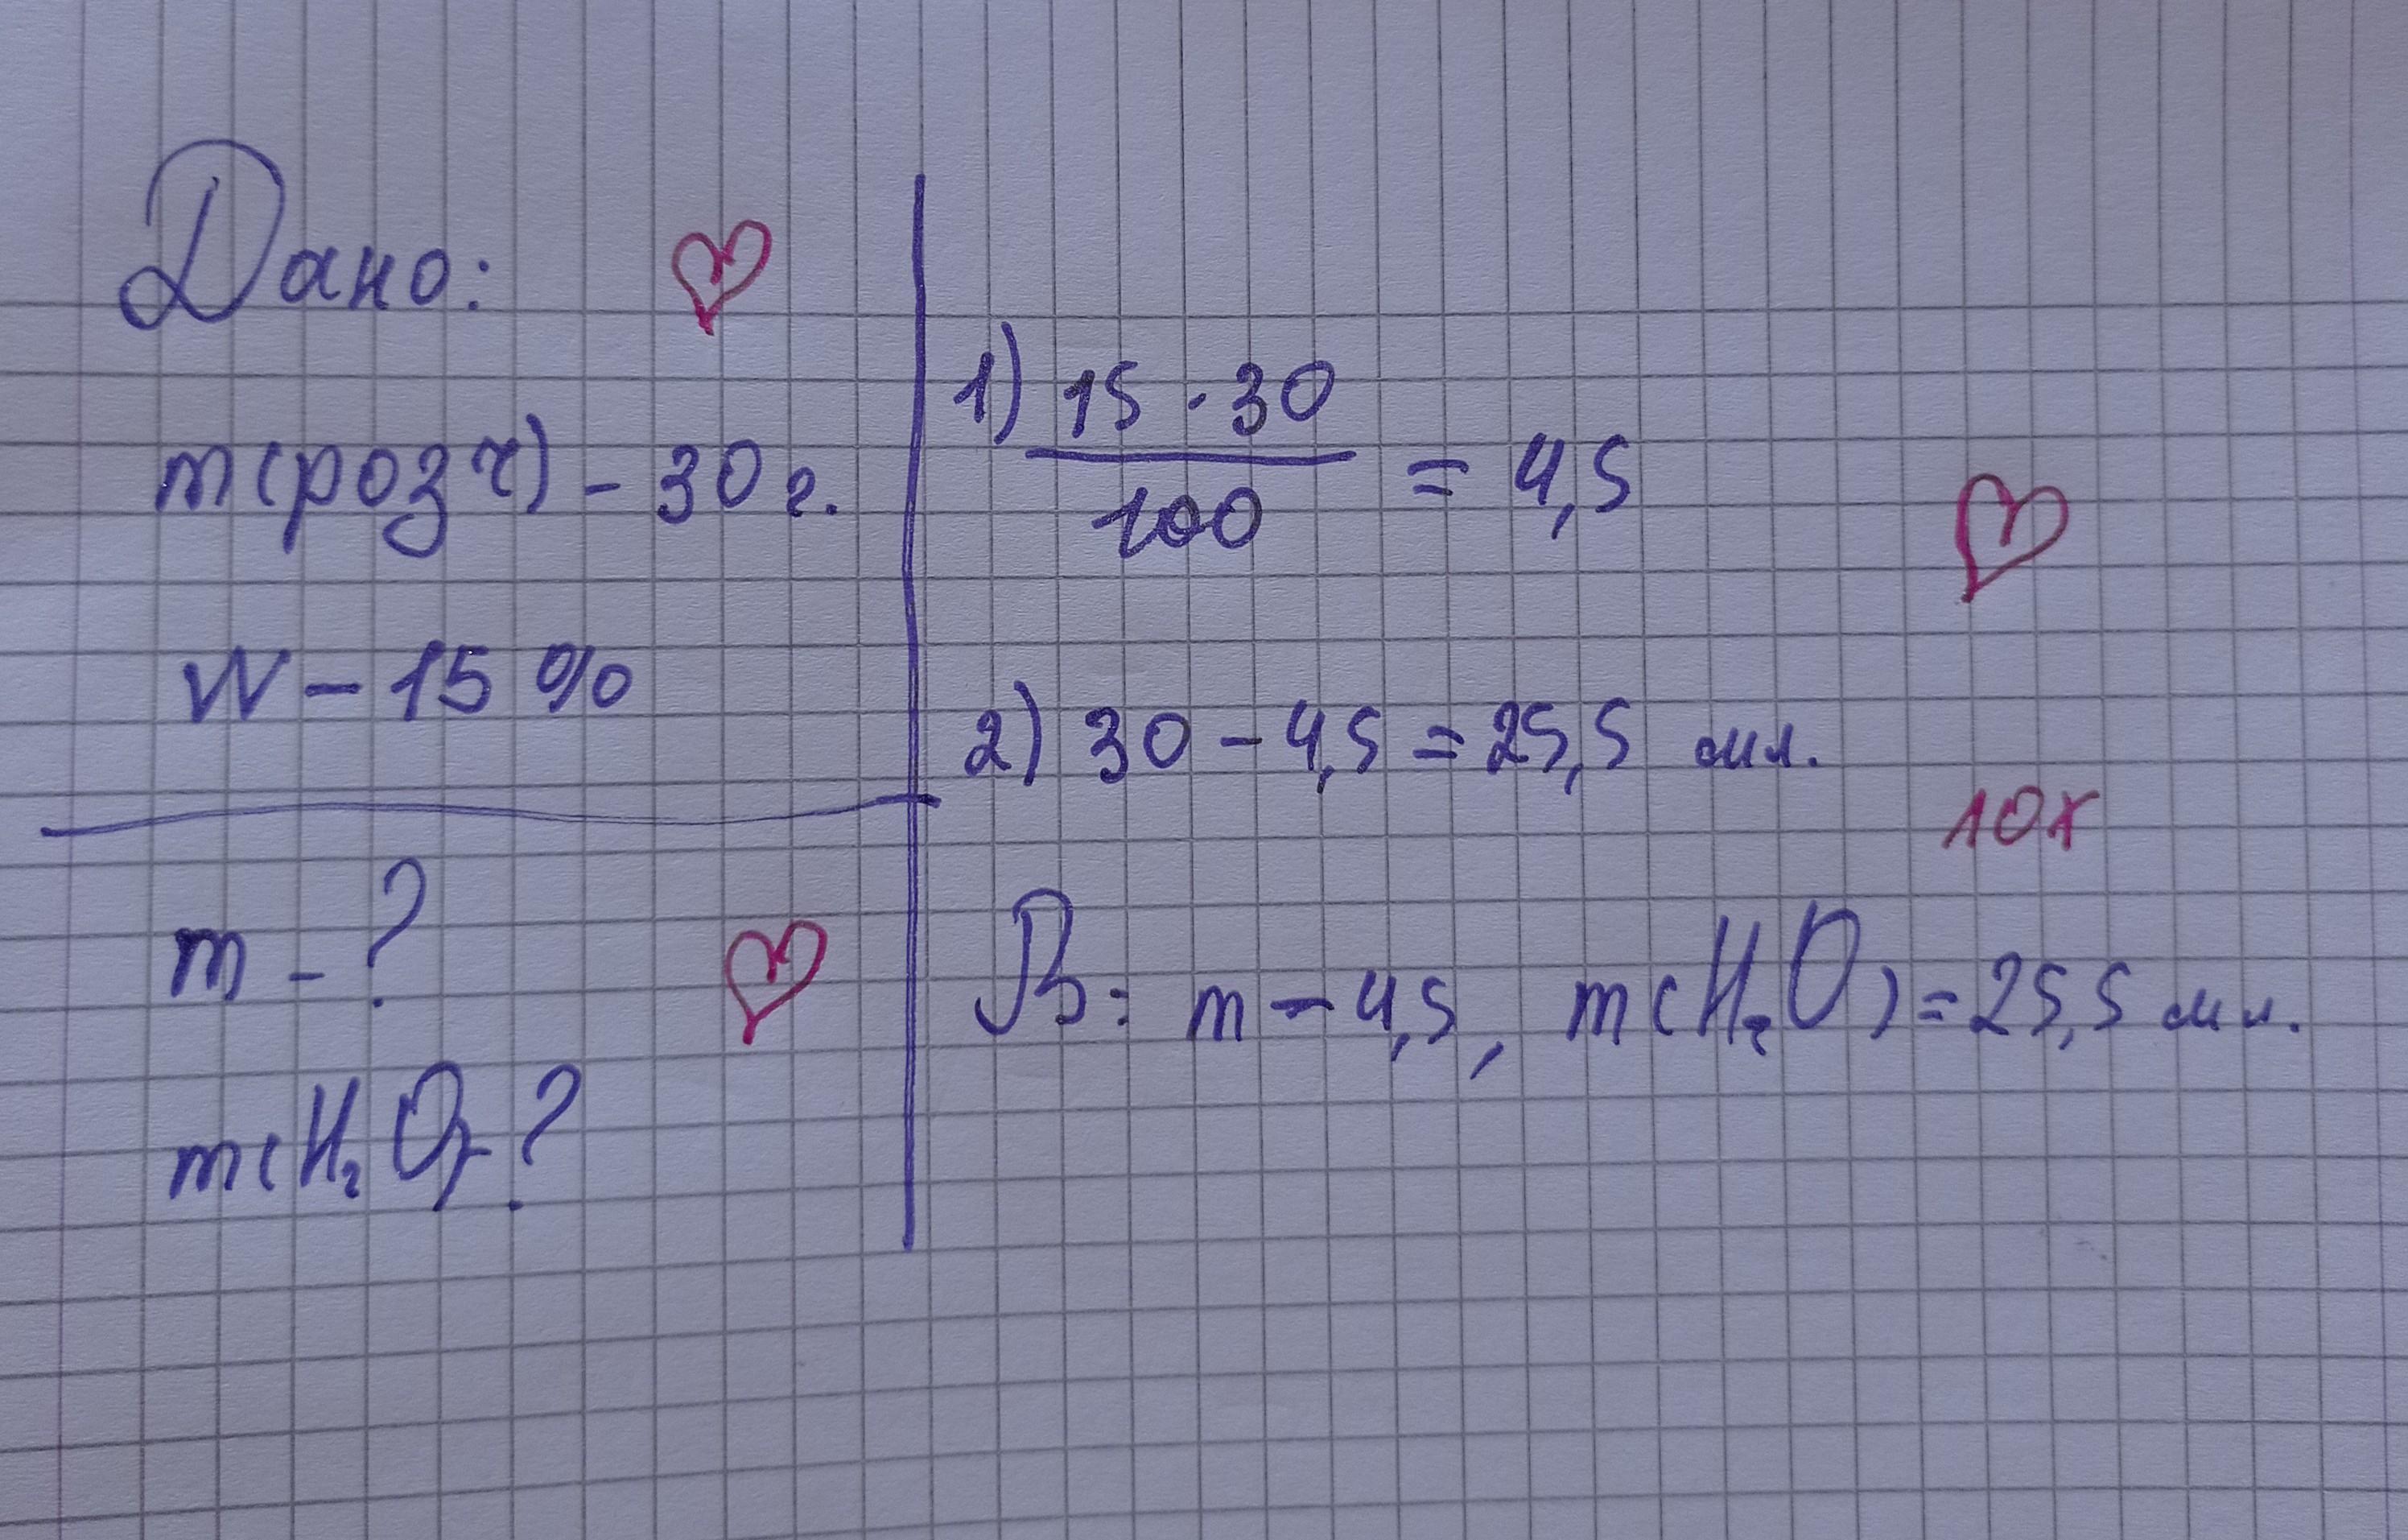 Дано:
m(розч) - 30 г.
W - 15 %
m - ?
m(H₂O) - ?
1) 15 · 30
100
= 4,5
2) 30 - 4,5 = 25,5 мл.
10x
В: m - 4,5, m(H₂O) = 25,5 мл.